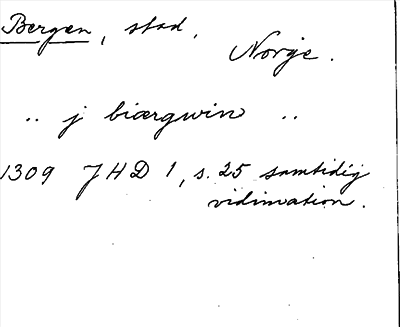 Bergen, stad.
Norge.
.. j biærgwin ..
1309 JHD 1, s. 25 samtidig
vidimation.